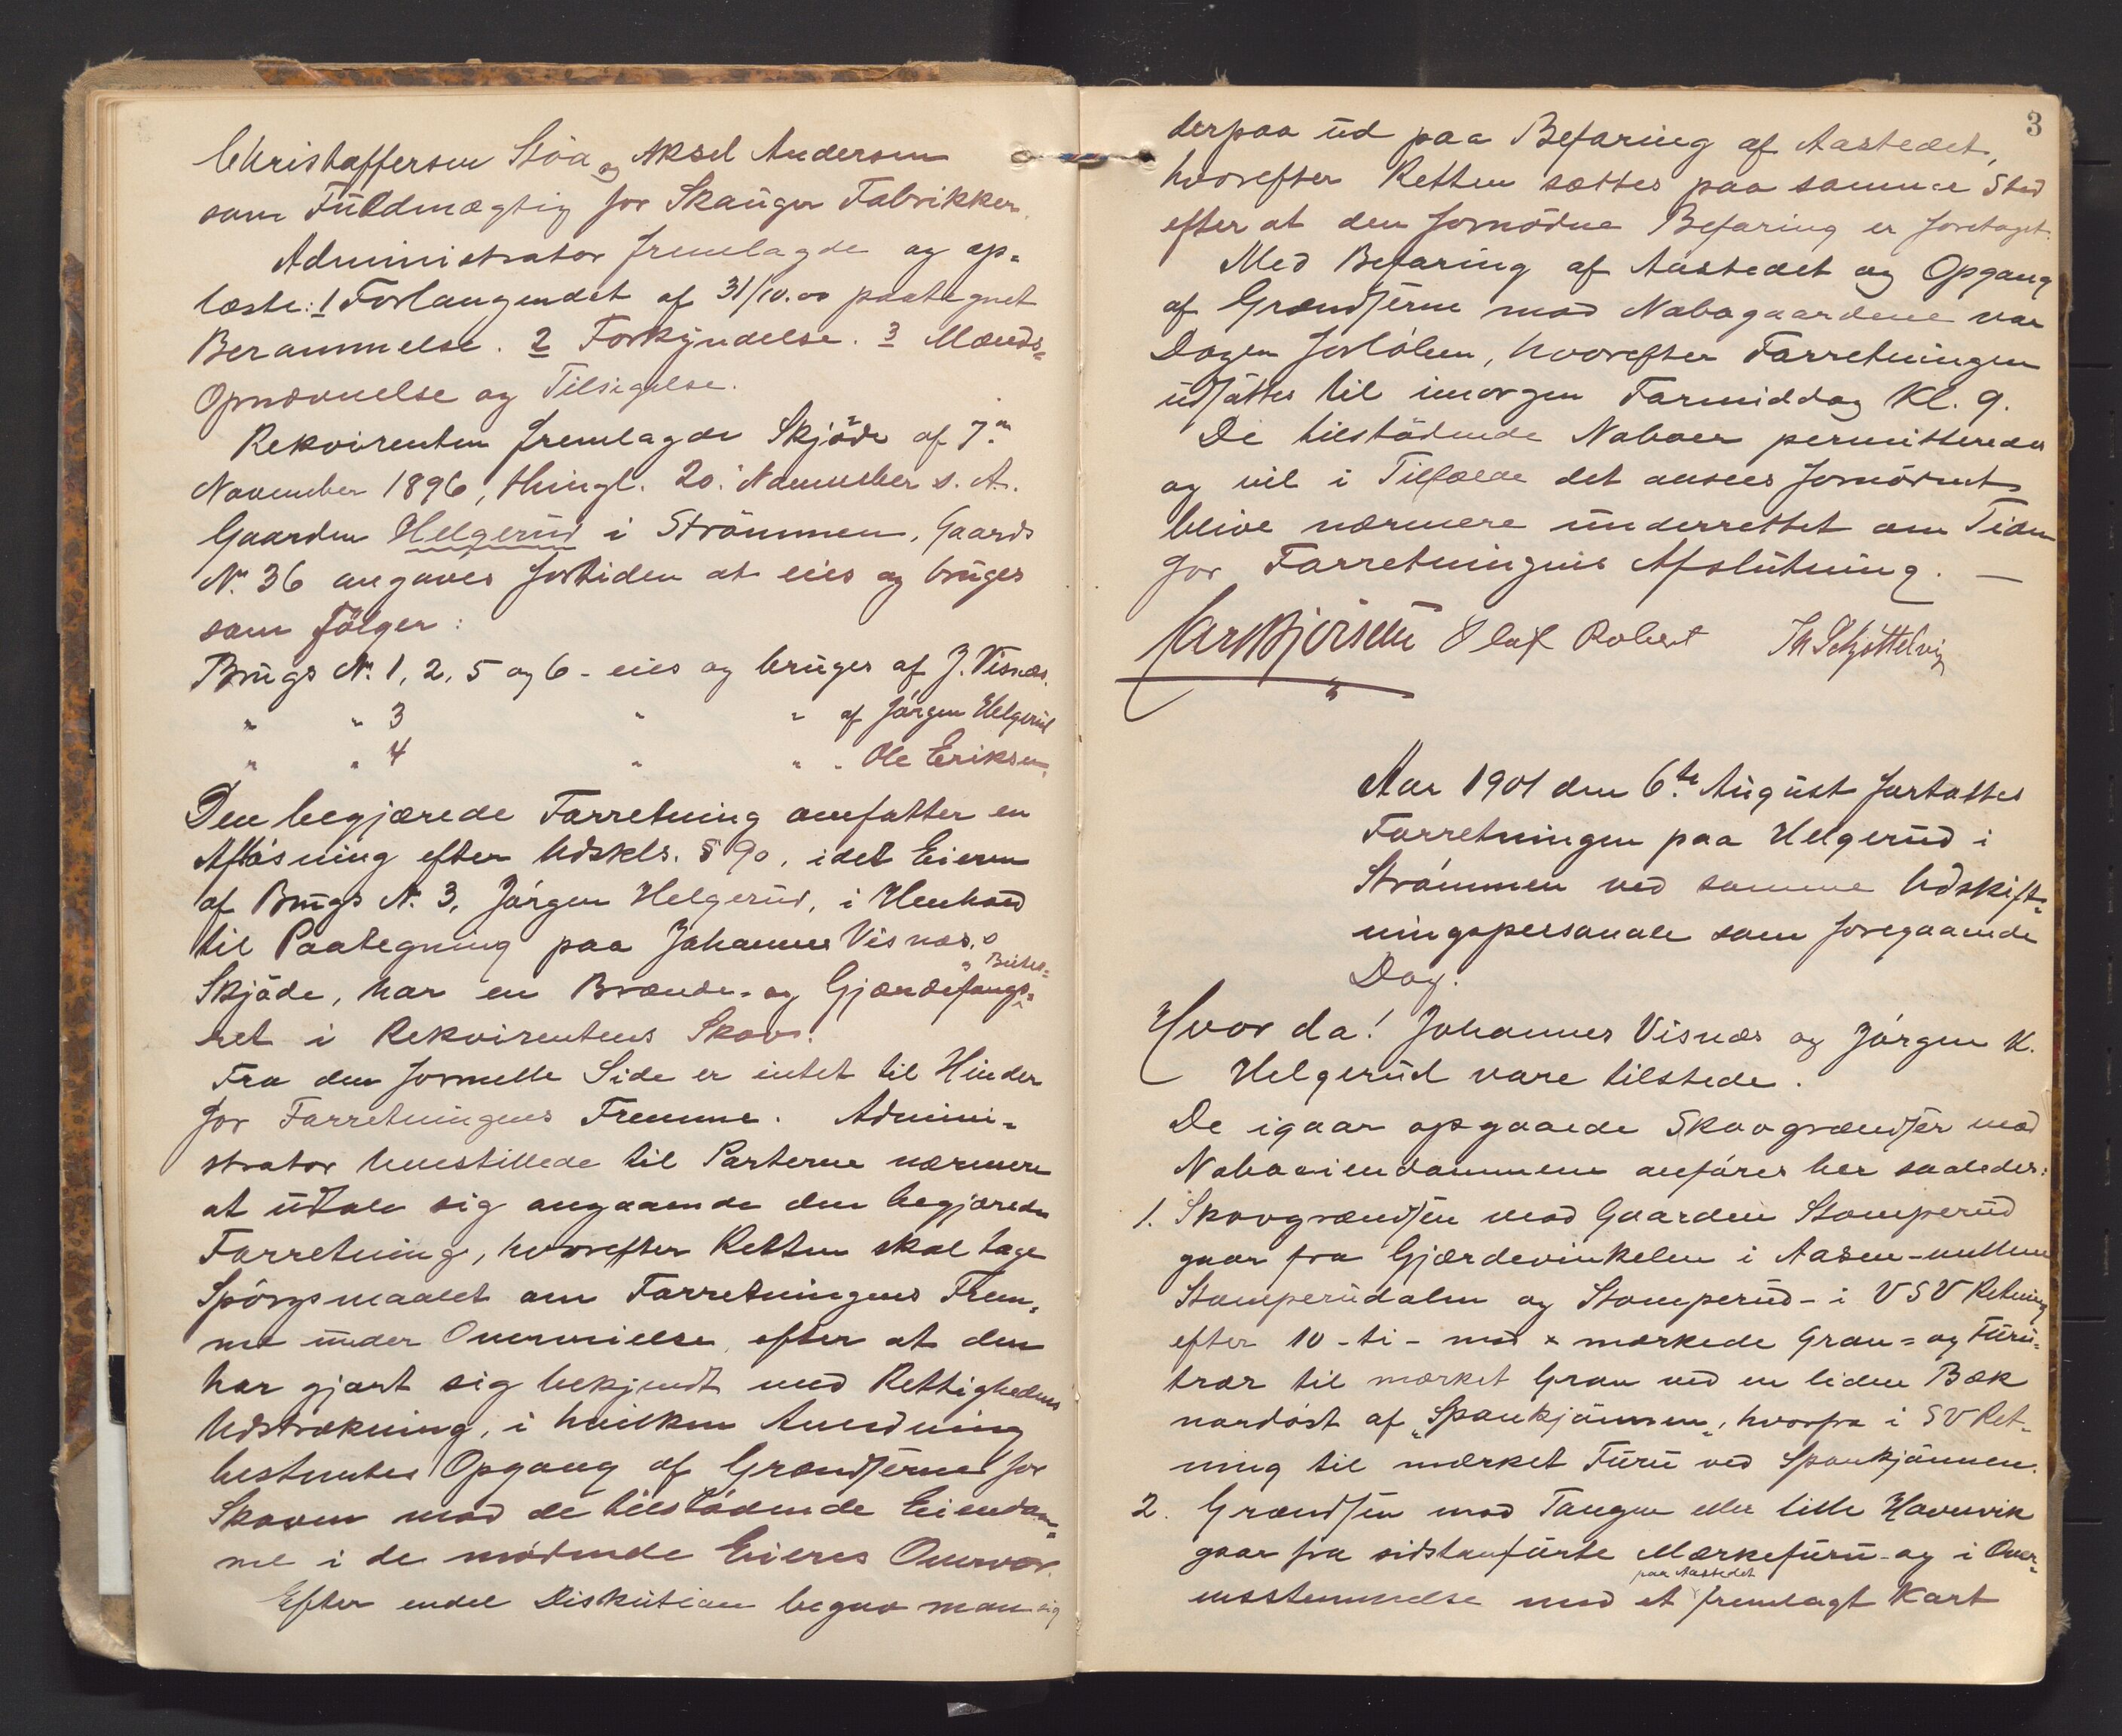 Christoffersen Stöa og Aksel Andersen
som Fuldmægtig for Skauger Fabrikker.
Administrator fremlagde og op-
læste: 1 Forlangendet af 31/10.00 paategnet
Berammelse. 2 Forkyndelse. 3 Mænds-
Opnævnelse og Tilsigelse.
Rekvirenten fremlagde Skjöde af 7de
November 1896, thingl. 20. November s. A.
Gaarden Helgerud i Strömmen, Gaards
No. 36 angaves fortiden at eies og bruges
som fölger:
Brugs No. 1, 2, 5 og 6 - eies og bruges af J. Visnæs.
" " 3 " " af Jörgen Helgerud
" " 4 " " " Ole Eriksen.
Den begjærede Forretning omfatter en
Aflösning efter Udskls. § 90, idet Eieren
af Brugs N. 3, Jörgen Helgerud, i Henhold
til Paategning paa Johannes Visnæs's
Skjöde, har en Brænde- og Gjærdefangs-
ret i Rekvirentens Skov.
Fra den formelle Side er intet til Hinder
for Forretningens Fremme. Admini-
strator henstillede til Parterne nærmere
at udtale sig angaaende den begjærede
Forretning, hvorefter Retten skal tage
Spörgsmaalet om Forretningens Frem-
me under Overveielse, efter at den
har gjort sig bekjendt med Rettighedens
Udstrækning, i hvilken Anledning
bestemtes Opgang af Grændserne for
Skoven mod de tilstödende Eiendom-
me i de mödende Eieres Overvær.
Efter endel Diskution begav man sig
3
derpaa ud paa Befaring af Aastedet,
hvorefter Retten sættes paa samme Sted
efter at den fornödne Befaring er foretaget.
Med Befaring af Aastedet og Opgang
af Grændserne mod Nabogaardene var
Dagen forlöben, hvorefter Forretningen
udsattes til imorgen Formiddag Kl. 9.
De tilstödende Naboer permitteredes
og vil i Tilfælde det ansees fornödent
blive nærmere underrettet om Tiden
for Forretningens Afslutning. —
Olaf Robert Th Schjöttelvig
Aar 1901 den 6.te August fortsattes
Forretningen paa Helgerud i
Strömmen ved samme Udskift-
ningspersonale som foregaaende
Dag.
Hvor da! Johannes Visnæs og Jörgen K.
Helgerud vare tilstede.
De igaar opgaaede Skovgrændser mod
Naboeiendommene anföres her saaledes:
1. Skovgrændsen mod Gaarden Stomperud
gaar fra Gjærdevinkelen i Aasen - mellem
Stomperudalen og Stomperud - i VSV Retning
efter 10 - ti - med x mærkede Gran- og Furu-
trær til mærket Gran ved en liden Bæk
nordöst af "Spankjönnen", hvorfra i SV Ret-
ning til mærket Furu ved Spankjönnen.
2. Grændsen mod Tangen eller lille Havnvik
gaar fra sidstanförte Mærkefuru - og i Over-
ensstemmelse med et paa Aastedet fremlagt Kart